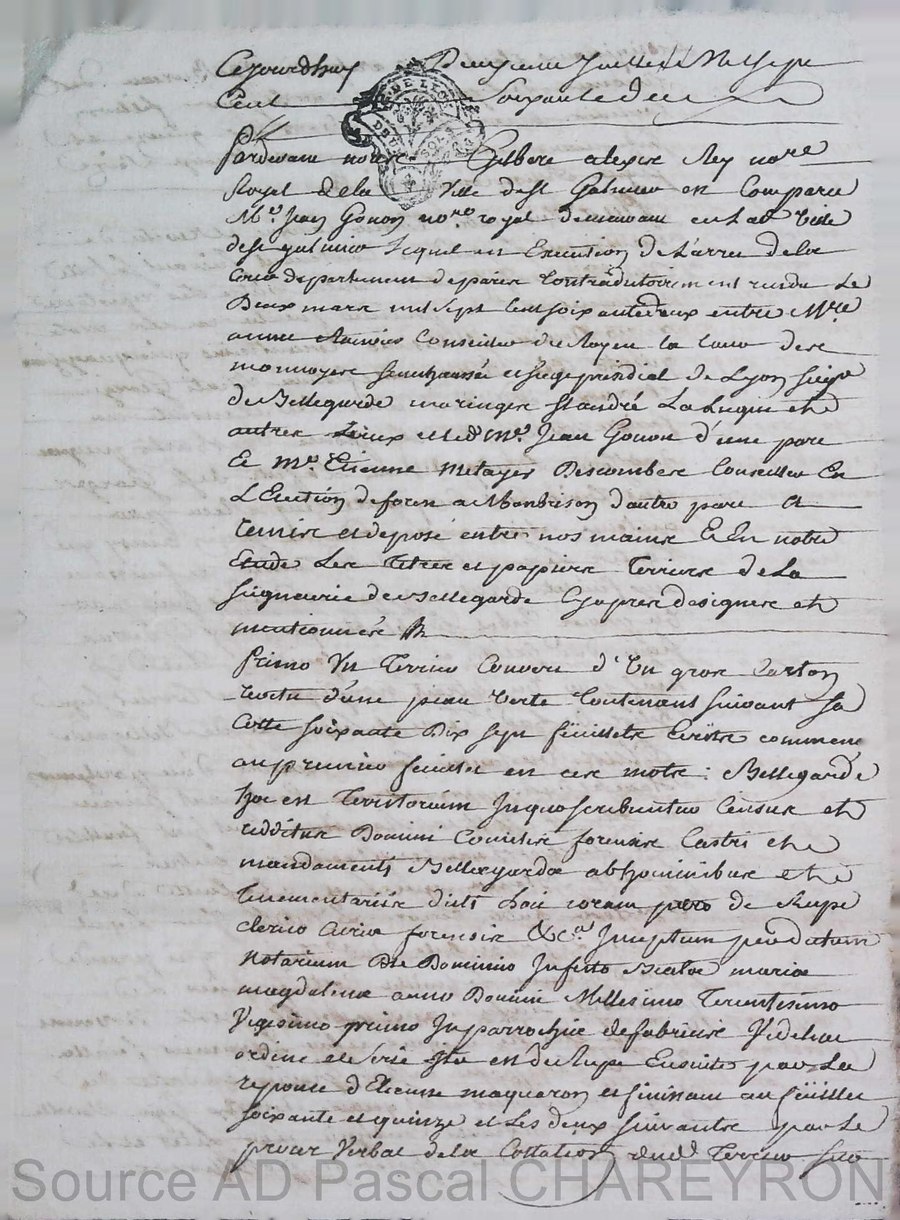 Cejourdhuy Deuxieme Juillet Mil sept
Cent Soixante deux
Pardevant nous Gilbert alexis Rey no.re
Royal de la Ville de St Galmier en Comparu
M.e Jean Gonon no.re royal demeurant en Lad Ville
de St galmier Lequel en Execution de Larret de la
Cour de parlement de paris Contradictoirement rendu Le
Deux mars mil sept Cent soixante deux entre M.re
Conseiller du Roy en la Cour des
monnoyes senechaussée et siege presidial de Lyon sieur
de Bellegarde maringes St andré La et
autres Lieux et led. M.e Jean Gonon d'une part
Et M.e Etienne Metayer Descombes Conseiller En
L'Election de forez a Monbrison d'autre part A
remis et deposé entre nos mains Et En notre
Etude Les Titres et papiers Terriers de La
seigneurie de Bellegarde Cy apres designés et
mentionnés
Primo Un Terrier Couvert d'Un gros Carton
vertu d'une peau Verte Contenant suivant sa
Cotte soixante Dix sept feüillets Ecrits commence
au premier feuillet en ces mots : Bellegarde
hoc est Territorium In quo scribuntur Census et
redditus Domini Comitis forensis Castri et
mandamenti Bellagarda ab hominibus et
Tenementariis dicti loci coram petro de Rupe
clerico Curia forensis &c.a Juratum
notarium Die Dominico In festo Beatae maria
magdalena anno Domini Millesimo Tercentesimo
Vigesimo primo In parrochia de fabricis Videlicet
ordine et serie Ita est de Rupe Ensuite par La
reponse d'Etienne maqueron et finissant au feüillet
soixante et quinze et Les deux suivants par Le
procès Verbal de la Cottation dud. Terrier
Source AD Pascal CHAREYRON